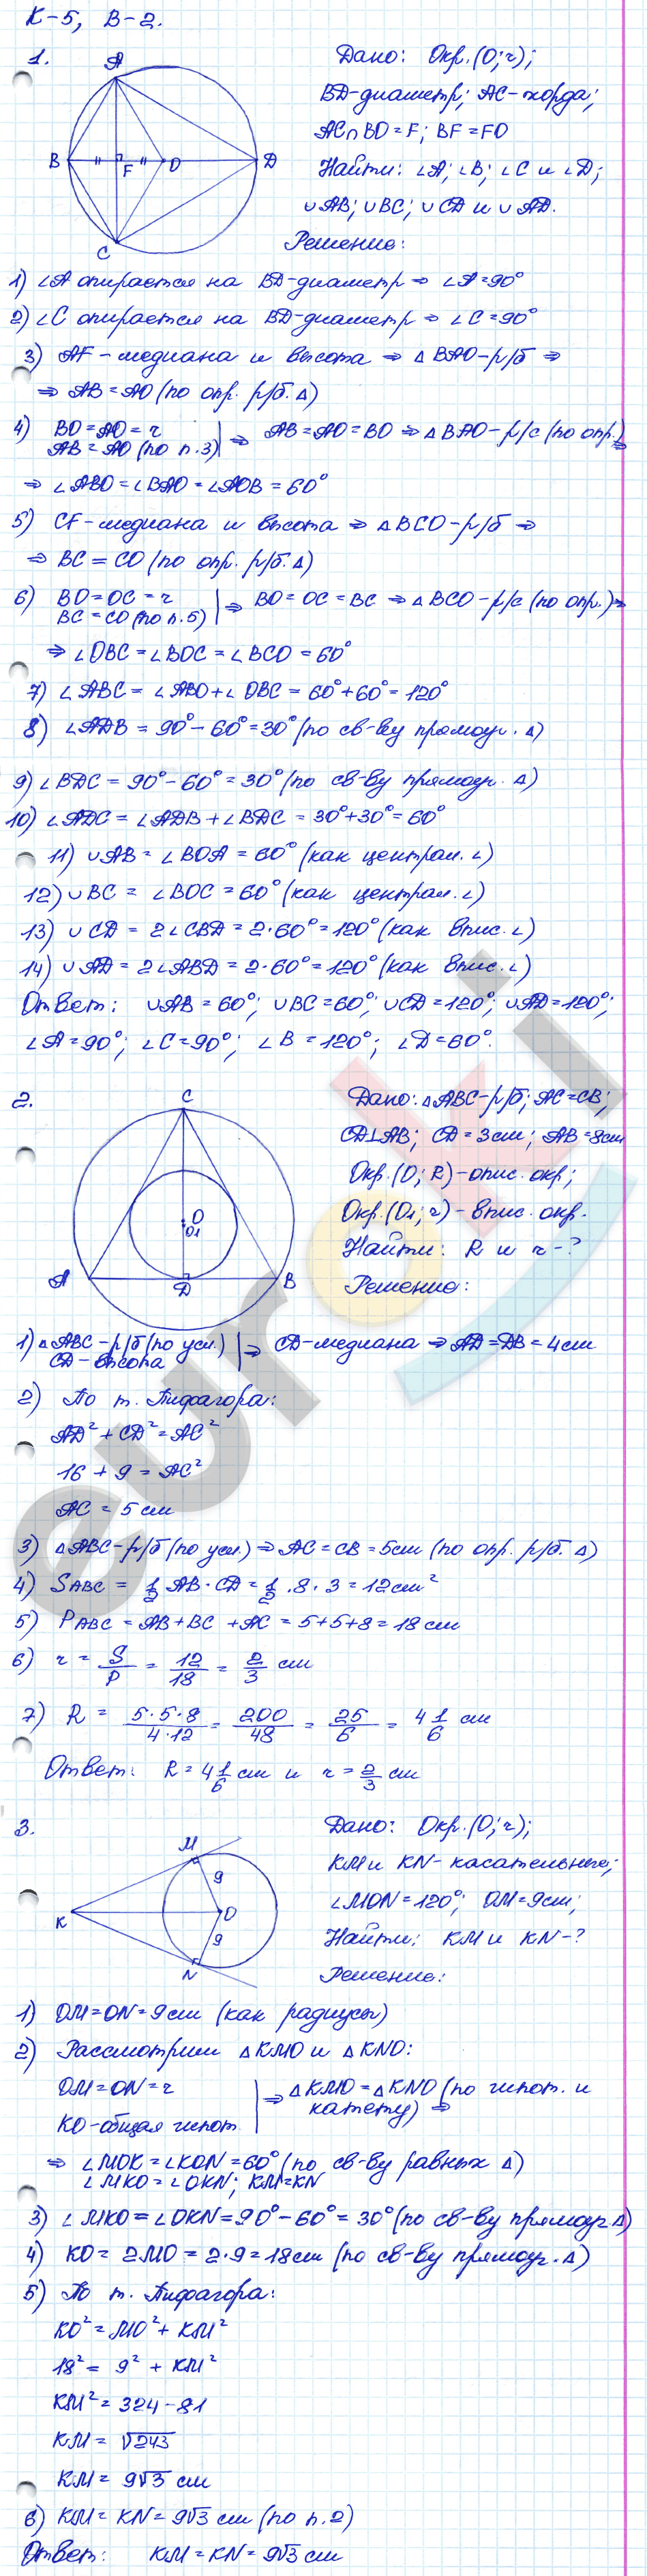 К-5, В-2.
1.
A
B
F
O
D
C
Дано: Окр.(O;r);
BD-диаметр; AC-хорда;
AC∩BD=F; BF=FO
Найти: ∠A; ∠B; ∠C и ∠D;
∪AB; ∪BC; ∪CD и ∪AD.
Решение:
1) ∠A опирается на BD-диаметр ⇒ ∠A=90°
2) ∠C опирается на BD-диаметр ⇒ ∠C=90°
3) AF-медиана и высота ⇒ △BAO-р/б ⇒
⇒ AB=AO (по опр. р/б. △)
4) BO=AO=r
AB=AO (по п.3) | ⇒ AB=AO=BO ⇒ △BAO-р/с (по опр.) ⇒
⇒ ∠ABO=∠BAO=∠AOB=60°
5) CF-медиана и высота ⇒ △BCO-р/б ⇒
⇒ BC=CO (по опр. р/б. △)
6) BO=OC=r
BC=CO (по п.5) | ⇒ BO=OC=BC ⇒ △BCO-р/с (по опр.) ⇒
⇒ ∠OBC=∠BOC=∠BCO=60°
7) ∠ABC=∠ABO+∠OBC=60°+60°=120°
8) ∠ADB=90°-60°=30° (по св-ву прямоуг. △)
9) ∠BDC=90°-60°=30° (по св-ву прямоуг. △)
10) ∠ADC=∠ADB+∠BDC=30°+30°=60°
11) ∪AB=∠BOA=60° (как централ. ∠)
12) ∪BC=∠BOC=60° (как централ. ∠)
13) ∪CD=2∠CBD=2·60°=120° (как впис. ∠)
14) ∪AD=2∠ABD=2·60°=120° (как впис. ∠)
Ответ: ∪AB=60°; ∪BC=60°; ∪CD=120°; ∪AD=120°;
∠A=90°; ∠C=90°; ∠B=120°; ∠D=60°.
2.
C
O
O1
A
D
B
Дано: △ABC-р/б; AC=CB;
CD⊥AB; CD=3см; AB=8см
Окр.(O;R)-опис. окр;
Окр.(O1;r)-впис. окр.
Найти: R и r-?
Решение:
1) △ABC-р/б (по усл.)
CD-высота | ⇒ CD-медиана ⇒ AD=DB=4см
2) По т. Пифагора:
AD²+CD²=AC²
16+9=AC²
AC=5см
3) △ABC-р/б (по усл.) ⇒ AC=CB=5см (по опр. р/б. △)
4) SABC=1/2 AB·CD=1/2·8·3=12см²
5) PABC=AB+BC+AC=5+5+8=18см
6) r=S/P=12/18=2/3 см
7) R=5·5·8/4·12=200/48=25/6=4 1/6 см
Ответ: R=4 1/6 см и r=2/3 см
3.
M
9
K
O
9
N
Дано: Окр.(O;r);
KM и KN-касательные;
∠MON=120°; OM=9см;
Найти: KM и KN-?
Решение:
1) OM=ON=9см (как радиусы)
2) Рассмотрим △KMO и △KNO:
OM=ON=r
KO-общая гипот. | ⇒ △KMO=△KNO (по гипот. и
катету) ⇒
⇒ ∠MOK=∠KON=60° (по св-ву равных △)
∠MKO=∠OKN; KM=KN
3) ∠MKO=∠OKN=90°-60°=30° (по св-ву прямоуг △)
4) KO=2MO=2·9=18см (по св-ву прямоуг. △)
5) По т. Пифагора:
KO²=MO²+KM²
18²=9²+KM²
KM²=324-81
KM=√243
KM=9√3 см
6) KM=KN=9√3 см (по п.2)
Ответ: KM=KN=9√3 см
euroki